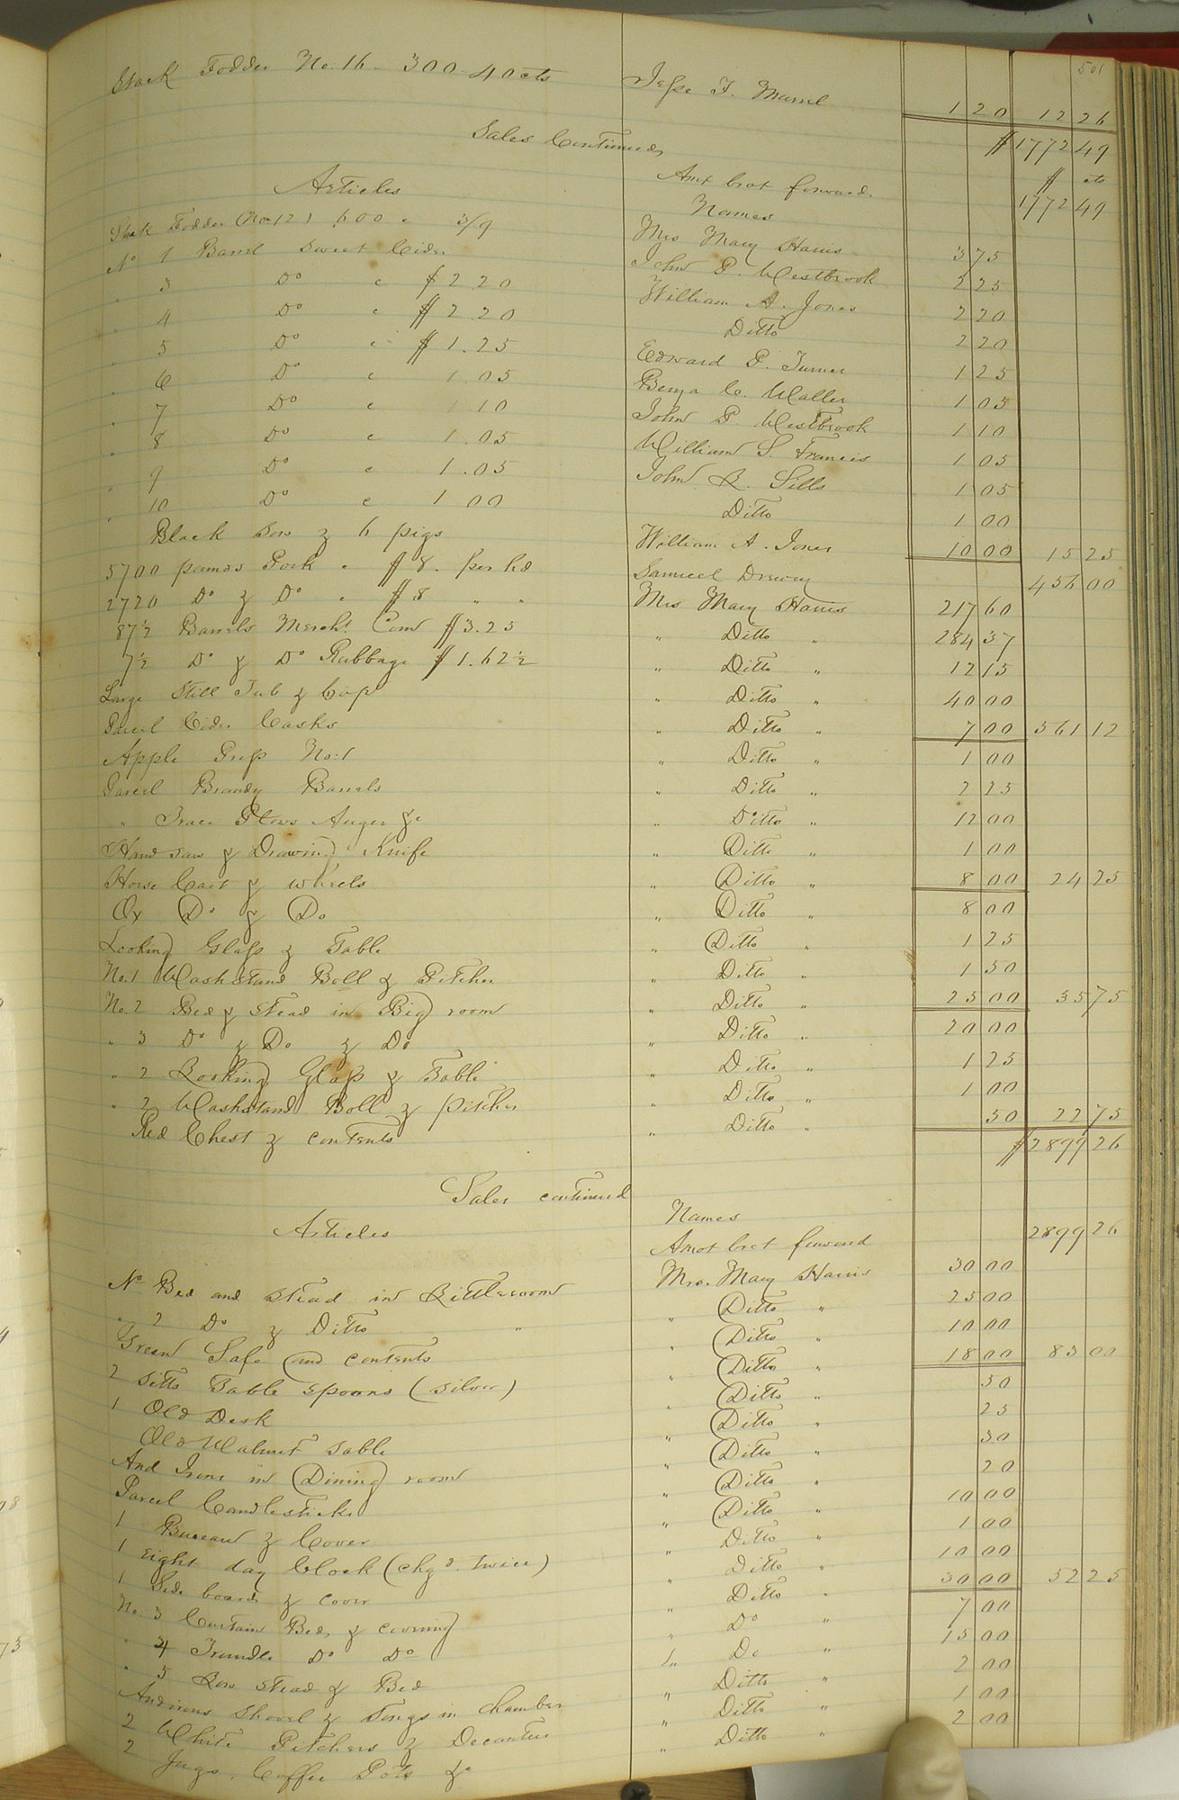 501
Stack Fodder No. 16 - 300 - 40 cts Jesse T. Murrel 1 20 12 26
Sales Continued, $1772 49
Articles Amt brot forward. $ cts 1772 49
Names
Stack Fodder (No 12) 500 @ 3/9 Mrs Mary Harris 3 75
No 1 Barrel Sweet Cider John P. Westbrook 2 25
" 3 Do @ $2 20 William A. Jones 2 20
" 4 Do @ $2.20 Ditto 2 20
" 5 Do @ $1.25 Edward P. Turner 1 25
" 6 Do @ 1.05 Benja C. Waller 1 05
" 7 Do @ 1 10 John P. Westbrook 1 10
" 8 Do @ 1.05 William S. Francis 1 05
" 9 Do @ 1.05 John R. Sills 1 05
" 10 Do @ 1 00 Ditto 1 00
Black Sow & 6 pigs William A. Jones 10 00 15 25
5700 pounds Pork @ $8. per hd Samuel Drewry 456 00
2720 Do & Do @ $8 " " Mrs Mary Harris 217 60
87½ Barrels Mercht. Corn $3.25 " Ditto " 284 37
7½ Do & Do Rubbage $1.62½ " Ditto " 12 15
Large Still Tub & Cap " Ditto " 40 00
Parcel Cider Casks " Ditto " 7 00 561 12
Apple Press No. 1 " Ditto " 1 00
Parcel Brandy Barrels " Ditto " 2 25
" Trace Plows Auger &c " Ditto " 12 00
Hand saw & Drawing Knife " Ditto " 1 00
Horse Cart & wheels " Ditto " 8 00 24 25
Ox Do & Do " Ditto " 8 00
Looking Glass & Table " Ditto " 1 25
No. 1 Washstand Boll & Pitcher " Ditto " 1 50
No. 2 Bed & Stead in Big room " Ditto " 25 00 35 75
" 3 Do & Do & Do " Ditto " 20 00
" 2 Looking Glass & Table " Ditto " 1 25
" 2 Washstand Boll & pitcher " Ditto " 1 00
Red Chest & contents " Ditto " 50 22 75
$2899 26
Sales continued
Articles Names
Amot brot forward 2899 26
No Bed and Stead in Little room Mrs. Mary Harris 30 00
" 2 Do & Ditto " " Ditto " 25 00
Green Safe and contents " Ditto " 10 00
2 Setts Table Spoons (silver) " Ditto " 18 00 83 00
1 Old Desk " Ditto " 50
Old Walnut Table " Ditto " 25
And Irons in Dining room " Ditto " 30
Parcel Candlesticks " Ditto " 20
1 Bureau & Cover " Ditto " 10 00
1 Eight day Clock (chgd. twice) " Ditto " 1 00
1 Side board & cover " Ditto " 10 00
No. 3 Curtain Bed & covering " Ditto " 30 00 52 25
" 4 Trundle Do Do " Do " 7 00
" 5 Low Stead & Bed " Do " 15 00
Andirons Shovel & Tongs in Chamber " Ditto " 2 00
2 White Pitchers & Decanters " Ditto " 1 00
2 Jugs, Coffee Pots &c " Ditto " 2 00